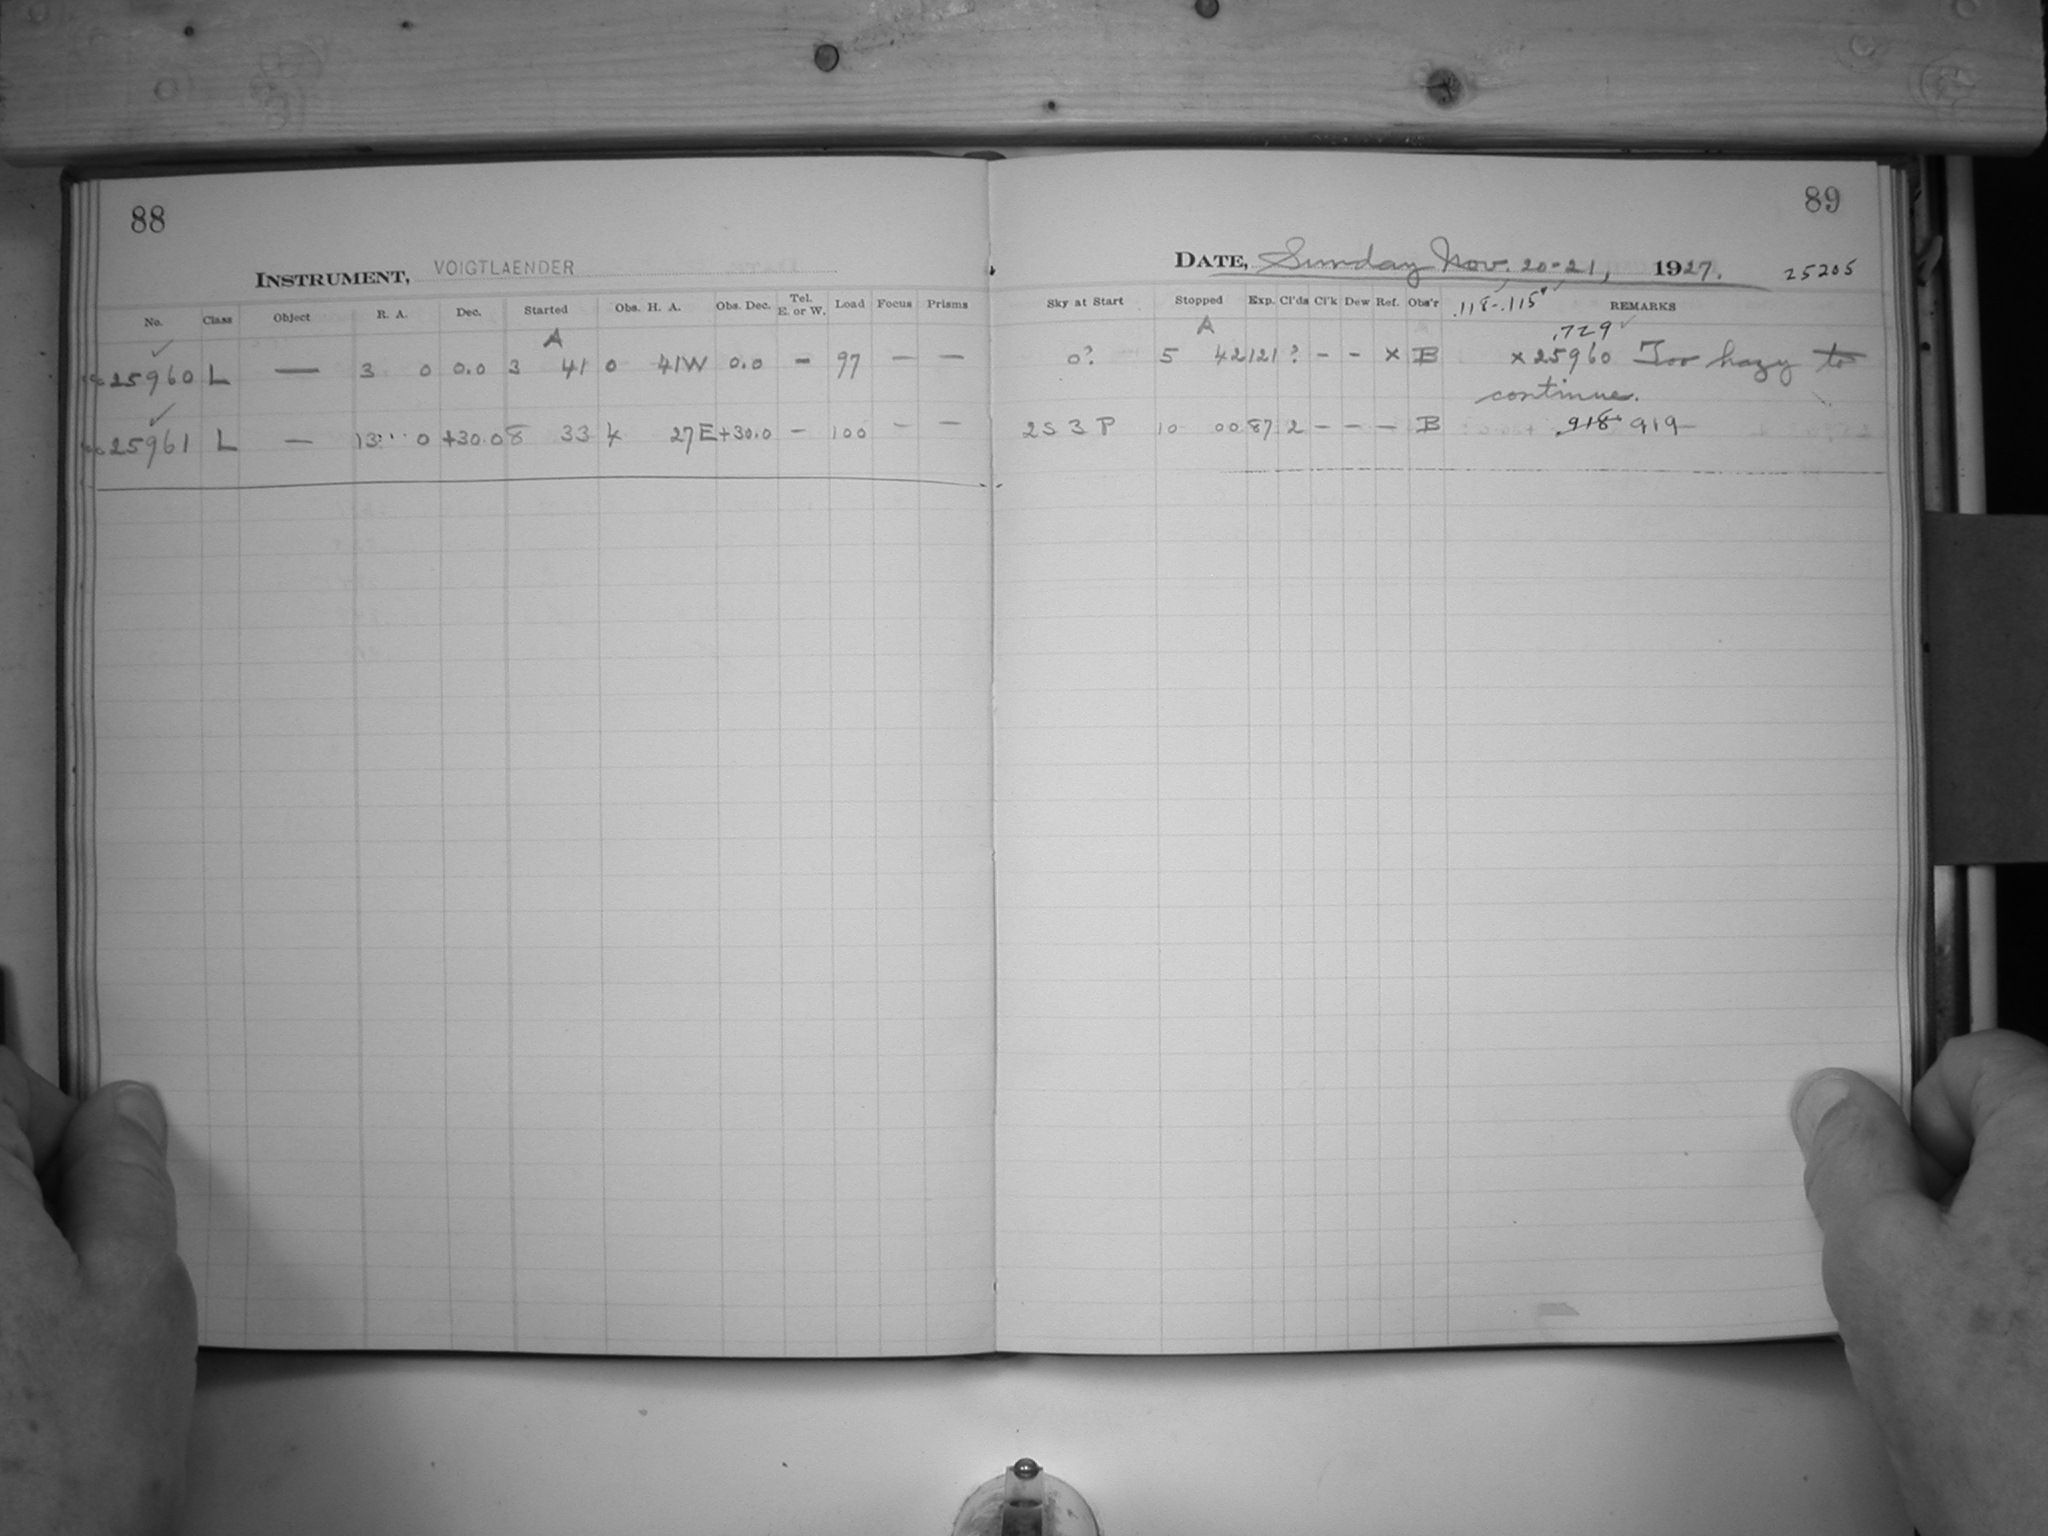 88
INSTRUMENT, VOIGTLAENDER
No. Class Object R. A. Dec. Started Obs. H. A. Obs. Dec. Tel. E. or W. Load Focus Prisms
A
25960 L — 3 0 0.0 3 41 0 41W 0.0 - 97 — —
25961 L — 13 0 +30.0 8 33 4 27E +30.0 - 100 — —
89
DATE, Sunday Nov. 20-21, 1927. 25205
Sky at Start Stopped Exp. Cl'ds Cl'k Dew Ref. Obs'r .118-.115 REMARKS
A .729
0? 5 42 121 ? - - × B × 25960 Too hazy to
continue.
2 S 3 P 10 00 87 2 - - - B .918 919